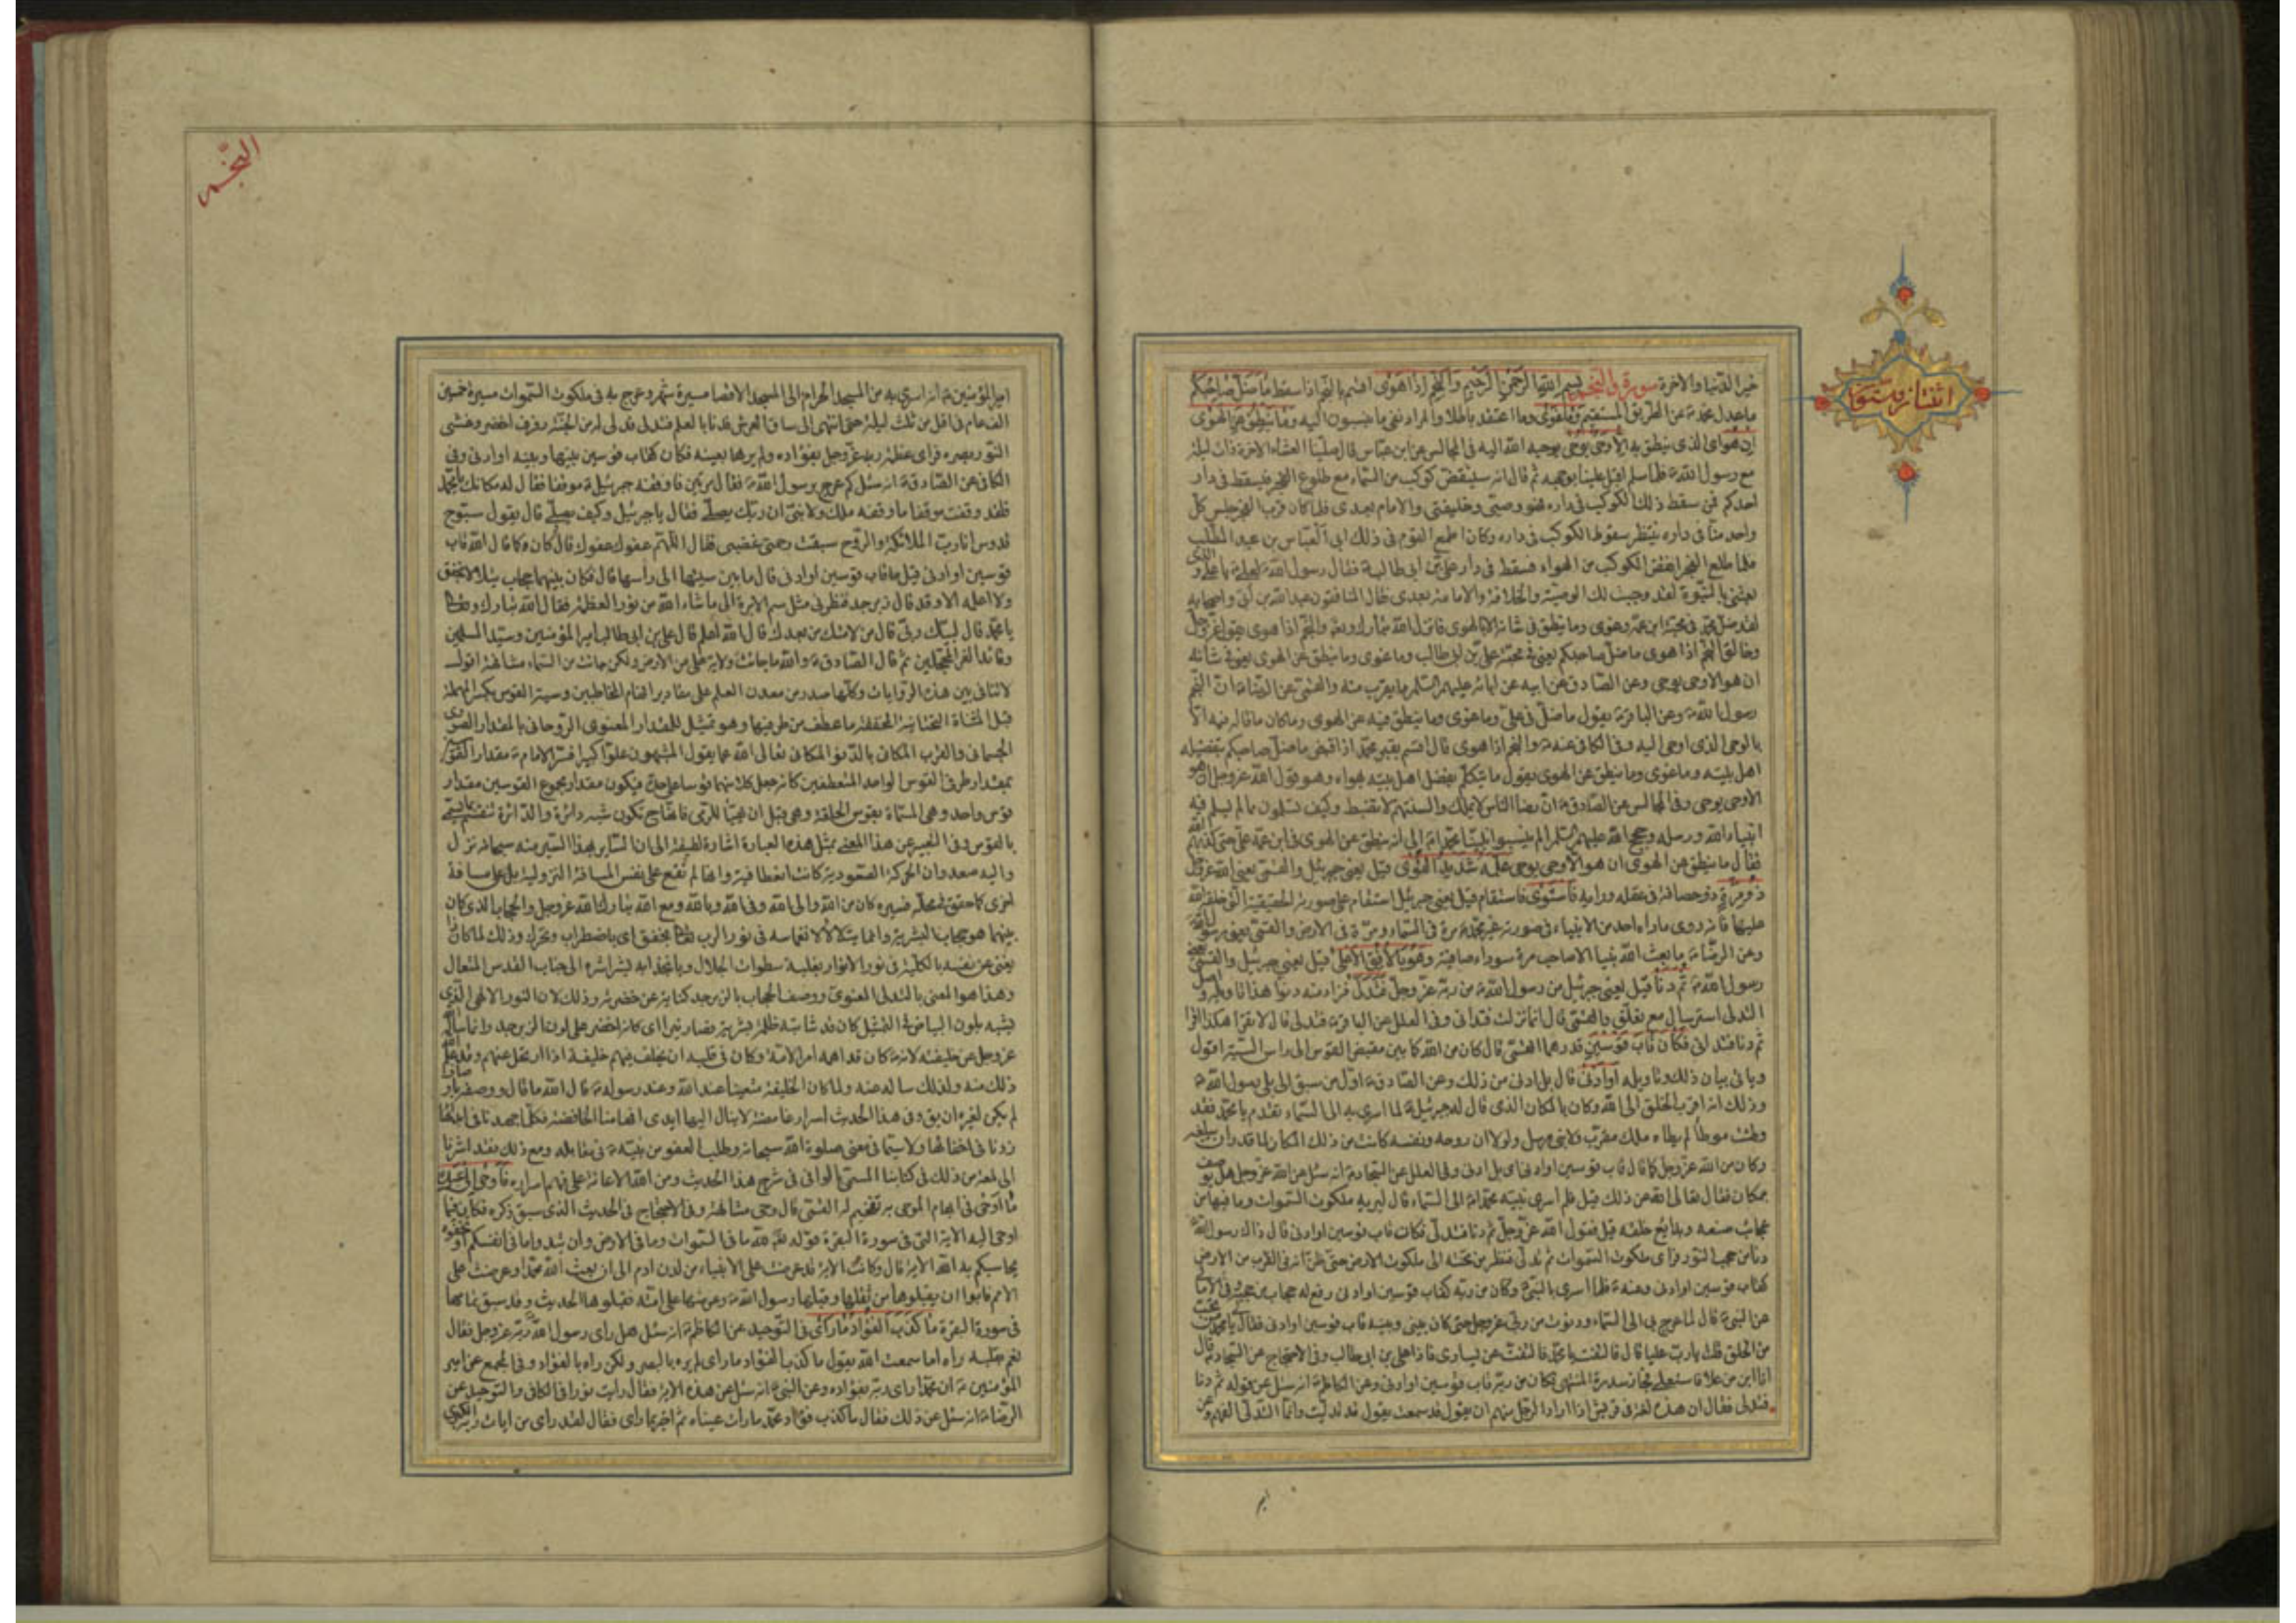 اثنتان وستون
خير الدنيا والاخرة سورة والنجم بسم الله الرحمن الرحيم والنجم اذا هوى اقسم بالنجم اذا سقط ما ضل صاحبكم
ما عدل محمد ص عن الطريق المستقيم وما غوى وما اعتقد باطلا والمراد نفى ما ينسبون اليه وما ينطق عن الهوى
ان هو اى الذى ينطق به الا وحى يوحى يوحيه الله اليه فى المجالس عن ابن عباس قال صلينا العشاء الاخرة ذات ليلة
مع رسول الله ص فلما سلم اقبل علينا بوجهه ثم قال انه سينقض كوكب من السماء مع طلوع الفجر فيسقط فى دار
احدكم فمن سقط ذلك الكوكب فى داره فهو وصيى وخليفتى والامام بعدى فلما كان قرب الفجر جلس كل
واحد منا فى داره ينتظر سقوط الكوكب فى داره وكان اطمع القوم فى ذلك ابى العباس بن عبد المطلب
فلما طلع الفجر انقض الكوكب من الهواء فسقط فى دار على بن ابى طالب ع فقال رسول الله ص لعلى ع يا على والذى
بعثنى بالنبوة لقد وجبت لك الوصية والخلافة والامامة بعدى فقال المنافقون عبد الله بن ابى واصحابه
لقد ضل محمد فى محبة ابن عمه وغوى وما ينطق فى شانه الا بالهوى فانزل الله تبارك وتعالى والنجم اذا هوى يقول عز وجل
وخالق النجم اذا هوى ما ضل صاحبكم يعنى فى محبة على بن ابى طالب وما غوى وما ينطق عن الهوى يعنى فى شانه
ان هو الا وحى يوحى وعن الصادق عن ابيه عن ابائه عليهم السلم ما يقرب منه والقمى عن الرضا ع ان النجم
رسول الله ص وعن الباقر ع يقول ما ضل فى على وما غوى وما ينطق فيه عن الهوى وما كان ما قاله فيه الا
بالوحى الذى اوحى اليه وفى الكافى عنه ع والنجم اذا هوى قال اقسم بقبر محمد اذا قبض ما ضل صاحبكم بتفضيله
اهل بيته وما غوى وما ينطق عن الهوى يقول ما يتكلم بفضل اهل بيته بهواه وهو قول الله عز وجل ان هو
الا وحى يوحى وفى المجالس عن الصادق ع ان رضا الناس لا يملك والسنتهم لا تضبط وكيف تسلمون ما لم يسلم فيه
انبياء الله ورسله وحجج الله عليهم السلم الم ينسبوا نبينا محمدا ص الى انه ينطق عن الهوى فى ابن عمه على حتى كذبهم الله
فقال ما ينطق عن الهوى ان هو الا وحى يوحى علمه شديد القوى قيل يعنى جبرئيل والقمى يعنى الله عز وجل
ذو مرة ذو حصافة فى عقله ورايه فاستوى فاستقام قيل يعنى جبرئيل استقام على صورته الحقيقية التى خلقه الله
عليها فانه روى ما راه احد من الانبياء فى صورته غير محمد ص مرة فى السماء ومرة فى الارض والقمى يعنى رسول الله
وعن الرضا ع ما بعث الله نبيا الا صاحب مرة سوداء صافية وهو بالافق الاعلى قيل يعنى جبرئيل والقمى يعنى
رسول الله ص ثم دنا قيل يعنى جبرئيل من رسول الله ص من ربه عز وجل فتدلى فزاد منه دنوا هذا تاويله واصل
التدلى استرسال مع تعلق والقمى قال انما نزلت فتدانى وفى العلل عن الباقر ع فتدلى قال لا تقرا هكذا اقرا
ثم دنا فتدانى فكان قاب قوسين قدرهما القمى قال كان من الله كما بين مقبض القوس الى راس السية اقول
وياتى بيان ذلك وتاويله او ادنى قال بل ادنى من ذلك وعن الصادق ع اول من سبق الى بلى رسول الله ص
وذلك انه اقرب الخلق الى الله وكان بالمكان الذى قال له جبرئيل ع لما اسرى به الى السماء تقدم يا محمد فقد
وطئت موطئا لم يطاه ملك مقرب ولا نبى مرسل ولولا ان روحه ونفسه كانت من ذلك المكان لما قدر ان يبلغه
وكان من الله عز وجل كما قال قاب قوسين او ادنى اى بل ادنى وفى العلل عن السجاد ع انه سئل عن الله عز وجل هل يوصف
بمكان فقال تعالى الله عن ذلك قيل فلم اسرى نبيه محمدا ص الى السماء قال ليريه ملكوت السموات وما فيها من
عجائب صنعه وبدايع خلقه قيل فقول الله عز وجل ثم دنا فتدلى فكان قاب قوسين او ادنى قال ذاك رسول الله ص
دنا من حجب النور فراى ملكوت السموات ثم تدلى فنظر من تحته الى ملكوت الارض حتى ظن انه فى القرب من الارض
كقاب قوسين او ادنى وعنه ع فلما اسرى بالنبى ص وكان من ربه كقاب قوسين او ادنى رفع له حجاب من حجبه وفى الامالى
عن النبى ص قال لما عرج بى الى السماء ودنوت من ربى عز وجل حتى كان بينى وبينه قاب قوسين او ادنى فقال يا محمد من تحب
من الخلق قلت يا رب عليا قال فالتفت يا محمد فالتفت عن يسارى فاذا على بن ابى طالب وفى الاحتجاج عن السجاد ع قال
انا ابن من علا فاستعلى فجاز سدرة المنتهى فكان من ربه قاب قوسين او ادنى وعن الكاظم ع انه سئل عن قوله ثم دنا
فتدلى فقال ان هذه لغة فى قريش اذا اراد الرجل منهم ان يقول قد سمعت يقول قد تدليت وانما التدلى الفهم وعن
النجم
امير المؤمنين ع انه اسرى به من المسجد الحرام الى المسجد الاقصا مسيرة شهر وعرج به فى ملكوت السموات مسيرة خمسين
الف عام فى اقل من ثلث ليلة حتى انتهى الى ساق العرش فدنا بالعلم فتدلى فدلى له من الجنة رفرف اخضر وغشى
النور بصره فراى عظمة ربه عز وجل بفؤاده ولم يرها بعينه فكان كقاب قوسين بينها وبينه او ادنى وفى
الكافى عن الصادق ع انه سئل كم عرج برسول الله ص فقال مرتين فاوقفه جبرئيل ع موقفا فقال له مكانك يا محمد
فلقد وقفت موقفا ما وقفه ملك ولا نبى ان ربك يصلى فقال يا جبرئيل وكيف يصلى قال يقول سبوح
قدوس انا رب الملائكة والروح سبقت رحمتى غضبى فقال اللهم عفوك عفوك قال وكان كما قال الله قاب
قوسين او ادنى قيل ما قاب قوسين او ادنى قال ما بين سيتها الى راسها قال فكان بينهما حجاب يتلالا يخفق
ولا اعلمه الا وقد قال زبرجد فنظر فى مثل سم الابرة الى ما شاء الله من نور العظمة فقال الله تبارك وتعالى
يا محمد قال لبيك ربى قال من لامتك من بعدك قال الله اعلم قال على بن ابى طالب امير المؤمنين وسيد المسلمين
وقائد الغر المحجلين ثم قال الصادق ع والله ما جائت ولاية على من الارض ولكن جائت من السماء مشافهة اقول
لا تنافى بين هذه الروايات وكلها صدر من معدن العلم على مقادير افهام المخاطبين وسية القوس بكسر المهملة
قبل المثناة التحتانية المخففة ما عطف من طرفيها وهو تمثيل للمقدار المعنوى الروحانى بالمقدار الصورى
الجسمانى والقرب المكانتى بالدنو المكانى تعالى الله عما يقول المشبهون علوا كبيرا فسر الامام ع مقدار القوسين
بمقدار طرفى القوس الواحد المنعطفين كانه جعل كلا منهما قوسا على حدة فيكون مقدار مجموع القوسين مقدار
قوس واحد وهى المسماة بقوس الحلقة وهى قبل ان يهيا للرمى فانها ح تكون شبه دائرة والدائرة تنقسم بما يسمى
بالقوس وفى التعبير عن هذا المعنى بمثل هذه العبارة اشارة لطيفة الى ان السائر بهذا السير منه سبحانه نزل
واليه صعد وان الحركة الصعودية كانت انعطافية وانها لم تقع على نفس المسافة النزولية بل على مسافة
اخرى كما حقق فى محله فسيره كان من الله والى الله وفى الله وبالله ومع الله تبارك الله عز وجل والحجاب الذى كان
بينهما هو حجاب البشرية وانما يتلالا لانغماسه فى نور الرب تعالى بخفق اى باضطراب وتحرك وذلك لما كاد ان
يفنى عن نفسه بالكلية فى نور الانوار بغلبة سطوات الجلال وبانجذابه بشراشره الى جناب القدس المتعال
وهذا هو المعنى بالتدلى المعنوى ووصف الحجاب بالزبرجد كناية عن خضرته وذلك لان النور الالهى الذى
يشبه بلون البياض فى التمثيل كان قد شابته ظلمة بشرية فصار يتراءى كانه اخضر على لون الزبرجد وانما ساله الله
عز وجل عن خليفته لانه كان قد اهمه امر الامة وكان فى قلبه ان يخلف فيهم خليفة اذا ارتحل عنهم وقد علم الله
ذلك منه ولذلك ساله عنه ولما كان الخليفة متعينا عند الله وعند رسوله ص قال الله ما قال ووصفه باوصاف
لم يكن لغيره ان ينال وفى هذا الحديث اسرار غامضة لا ينال اليها ايدى افهامنا الخافضة فكلما جهدنا فى ابدائها
زدنا فى اخفائها ولا سيما فى معنى صلوة الله سبحانه وطلب العفو من نبيه ص فى مقابله ومع ذلك فقد اشرنا
الى لمعة من ذلك فى كتابنا المسمى بالوافى فى شرح هذا الحديث ومن الله الاعانة على فهم اسراره فاوحى الى عبده
ما اوحى فى ابهام الموحى به تفخيم له القمى قال وحى مشافهة وفى الاحتجاج فى الحديث الذى سبق ذكره فكان فيما
اوحى اليه الاية التى فى سورة البقرة قوله لله ما فى السموات وما فى الارض وان تبدوا ما فى انفسكم او تخفوه
يحاسبكم به الله الاية قال وكانت الاية قد عرضت على الانبياء من لدن ادم الى ان بعث الله محمدا وعرضت على
الامم فابوا ان يقبلوها من ثقلها وقبلها رسول الله ص وعرضها على امته فقبلوها الحديث وقد سبق تمامها
فى سورة البقرة ما كذب الفؤاد ما راى فى التوحيد عن الكاظم ع انه سئل هل راى رسول الله ص ربه عز وجل فقال
نعم بقلبه راه اما سمعت الله يقول ما كذب الفؤاد ما راى لم يره بالبصر ولكن راه بالفؤاد وفى المجمع عن امير
المؤمنين ع ان محمدا راى ربه بفؤاده وعن النبى ص انه سئل عن هذه الاية فقال رايت نورا وفى الكافى والتوحيد عن
الرضا ع انه سئل عن ذلك فقال ما كذب فؤاد محمد ما رات عيناه ثم اخبر بما راى فقال لقد راى من ايات ربه الكبرى